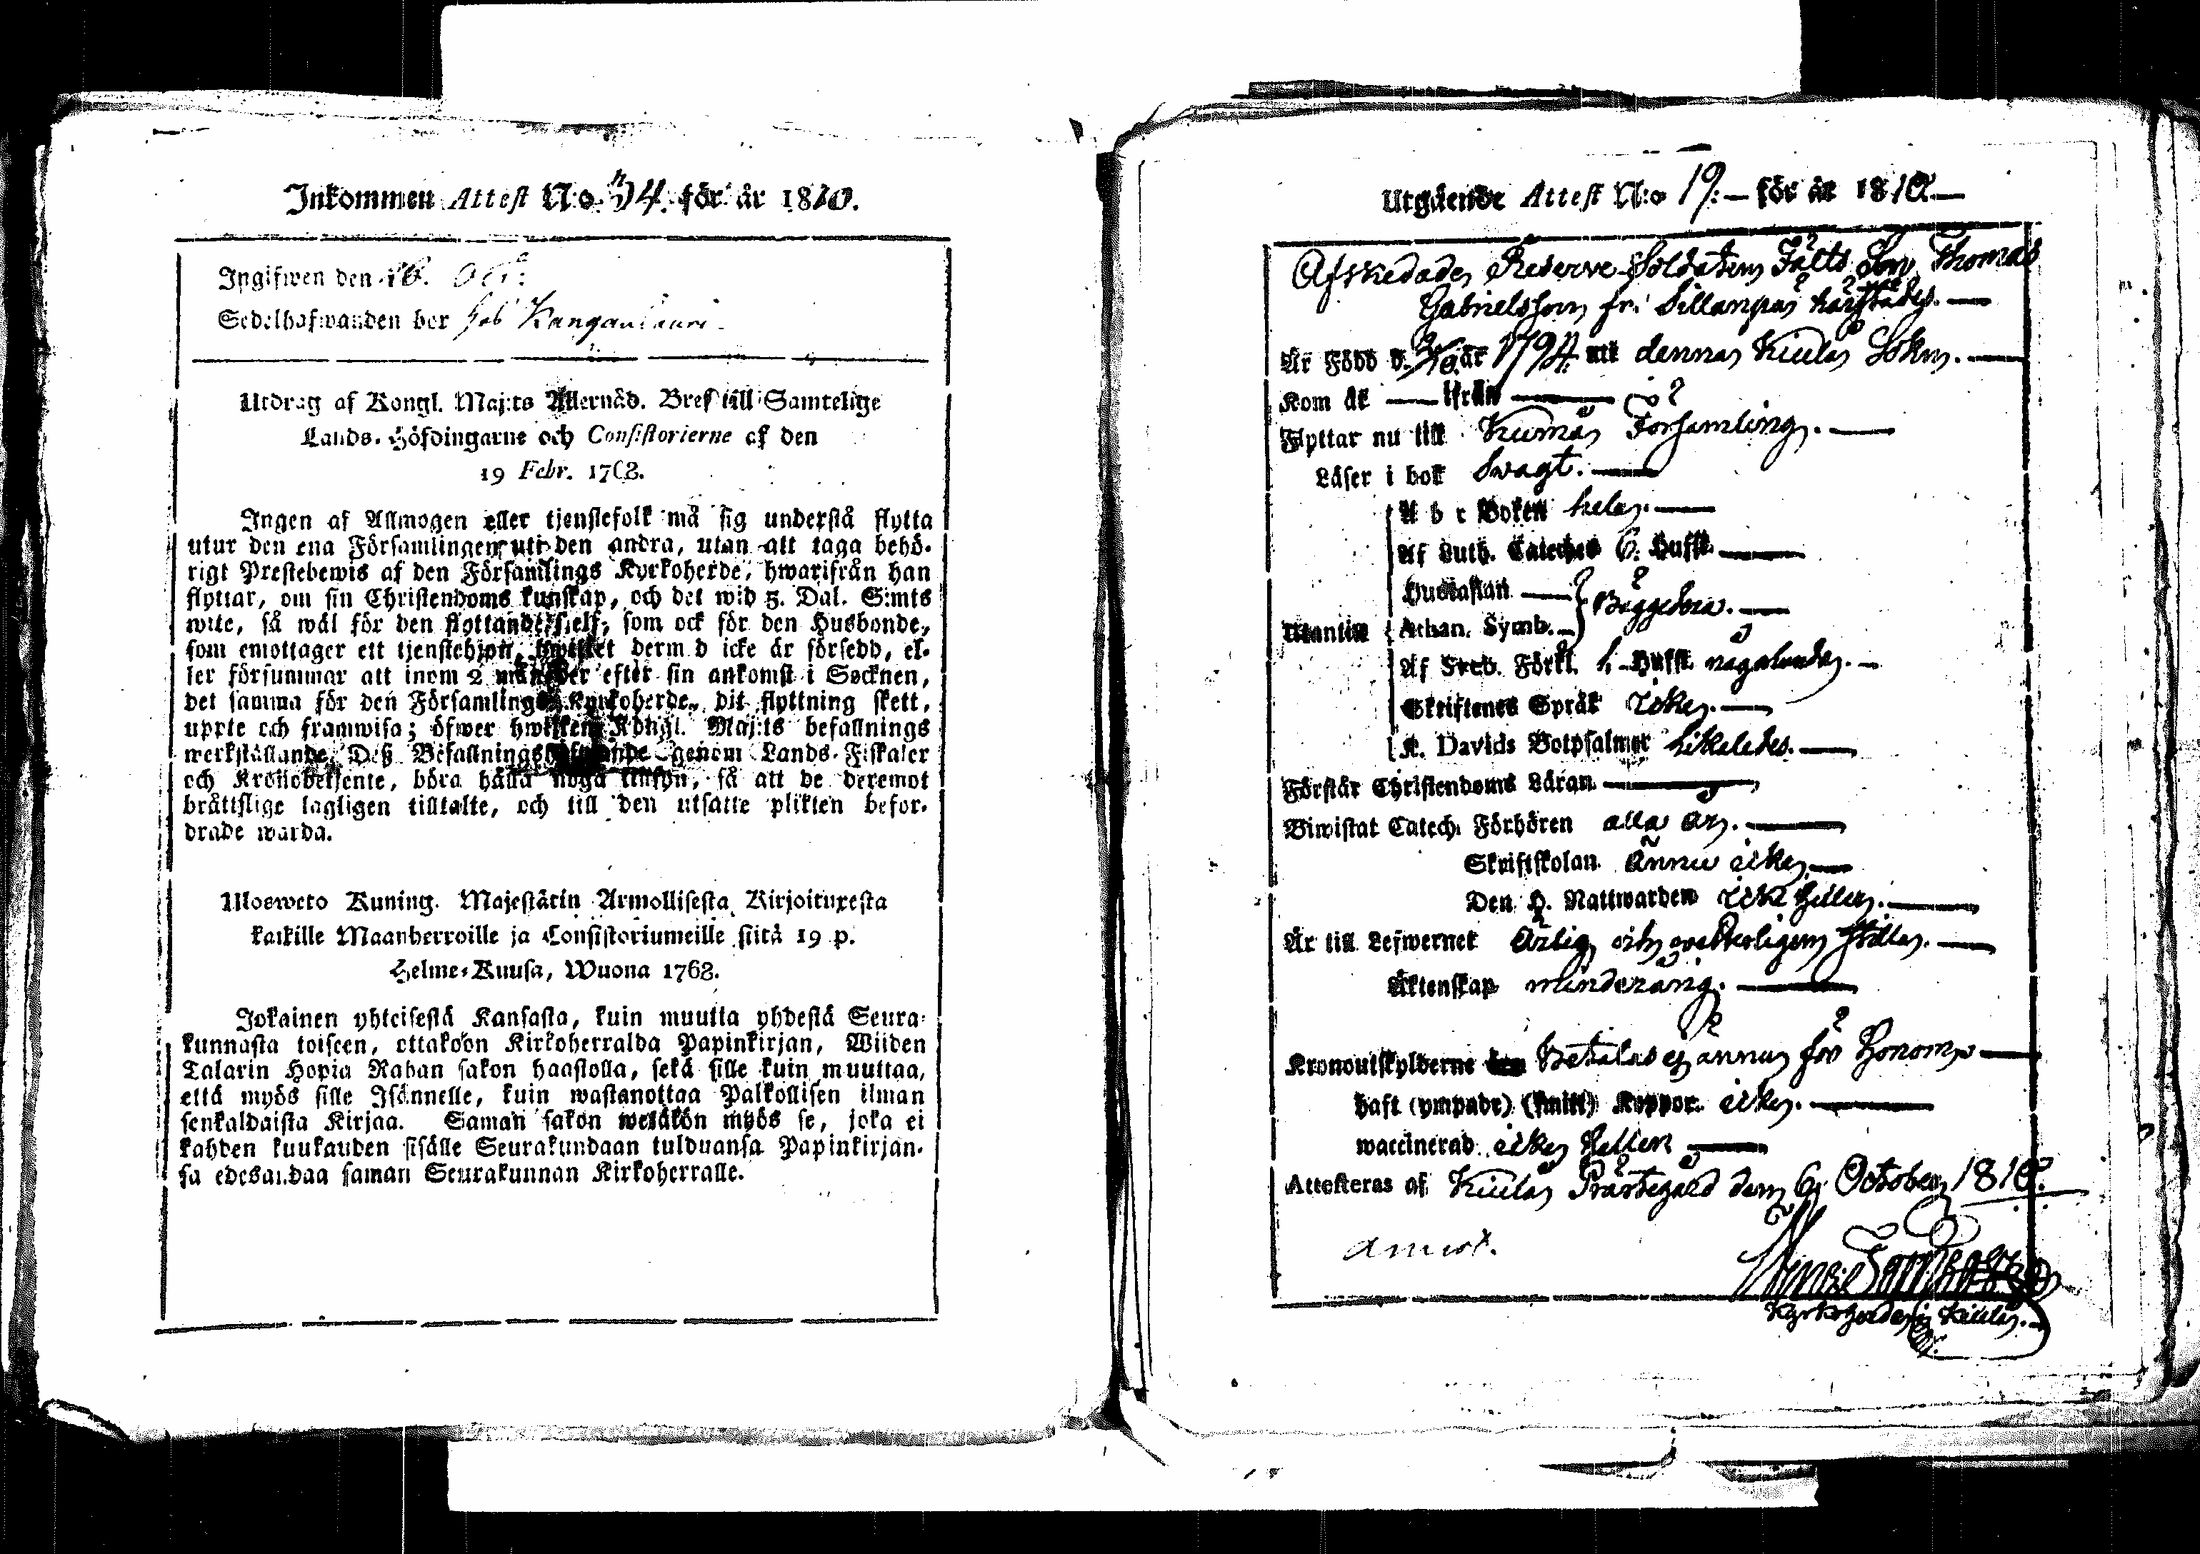 Inkommen Attest N:o 94. för år 1810.
Ingifwen den 16. Oct:
Sedelhafwanden bor hos Kanganlauri.
Utdrag af Kongl. Maj:ts Allernåd. Bref till Samtelige
Lands-Höfdingarne och Consistorierne af den
19 Febr. 1768.
Ingen af Allmogen eller tjenstefolk må sig understå flytta
utur den ena Församlingen uti den andra, utan att taga behö-
rigt Prestebewis af den Församlings Kyrkoherde, hwarifrån han
flyttar, om sin Christendoms kunskap, och det wid 5. Dal. S:mts
wite, så wäl för den flyttande sielf, som ock för den Husbonde,
som emottager ett tjenstehjon, hwilket dermed icke är försedd, el-
ler försummar att inom 2 månader efter sin ankomst i Socknen,
det samma för den Församlings Kyrkoherde, dit flyttning skett,
uppte och framwisa; öfwer hwilken Kongl. Maj:ts befallnings
werkställande, Deß Befallningshafwande genom Lands-Fiskaler
och Kronobetjente, böra hålla noga tillsyn, så att de deremot
bråttslige lagligen tilltalte, och till den utsatte plikten befor-
drade warda.
Ulosweto Kuning. Majestätin Armollisesta Kirjoituxesta
kaikille Maanherroille ja Consistoriumeille siitä 19 p.
Helme-Kuusa, Wuona 1768.
Jokainen yhteisestä Kansasta, kuin muutta yhdestä Seura-
kunnasta toiseen, ottakoon Kirkoherralda Papinkirjan, Wiiden
Talarin Hopia Rahan sakon haastolla, sekä sille kuin muuttaa,
että myös sille Isännelle, kuin wastanottaa Palkollisen ilman
senkaldaista Kirjaa. Saman sakon wetäkön myös se, joka ei
kahden kuukauden sisälle Seurakundaan tulduansa Papinkirjan-
sa edesandaa saman Seurakunnan Kirkoherralle.
Utgående Attest N:o 19:— för år 1810.—
Afskedade Reserve-Soldaten Fälts Son Thomas
Gabrielsson fr. Sillanpää
Är Född d. år 1794. uti denna Kiula Sokn.—
Kom åt — ifrån —
Flyttar nu till Kumå Församling.—
Läser i bok Svagt.—
Utantill
A b c Boken hela.—
Af Luth. Cateches 6. Hufst.—
Hustaflan —
Athan. Symb.— Båggedera.—
Af Sveb. Förkl. 1. Hufst. någorlunda.—
Skriftenes Språk icke.—
K. Davids Botpsalmer likeledes.—
Förstår Christendoms Läran —
Biwistat Catech. Förhören alla år.—
Skriftskolan ännu icke.—
Den H. Nattwarden icke heller.—
Är till Lefwernet Ärlig och stilla.—
Äktenskap minderårig.—
Kronoutskylderne Betalas ej ännu för honom.—
haft (ympade) (smitt) Koppor. icke.—
waccinerad icke heller —
Attesteras af Kiula Prästegård den 6. October 1810.
Kyrkoherde i Kiula.